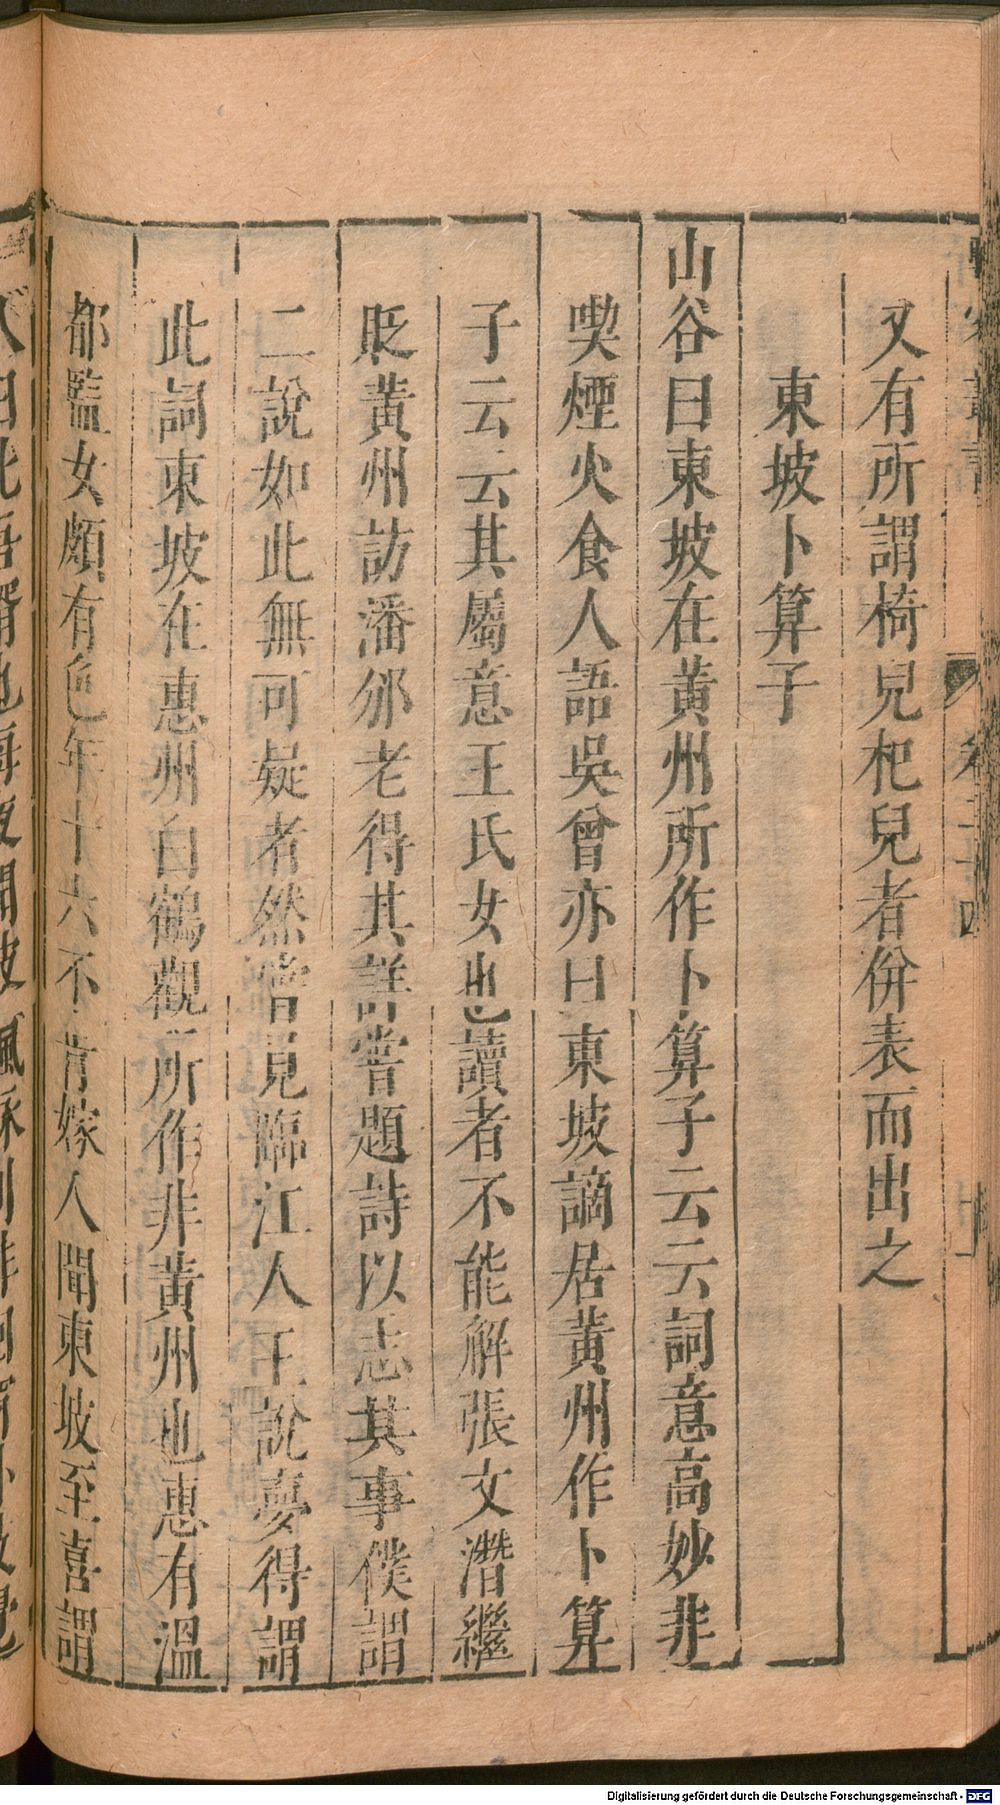 又有所謂椅兒杞兒者併表而出之
東坡卜算子
山谷曰東坡在黃州所作卜算子云云詞意高妙非
喫煙火食人語吳曾亦曰東坡謫居黃州作卜算
子云云其屬意王氏女也讀者不能解張文潛繼
貶黃州訪潘邠老得其詳嘗題詩以志其事僕謂
二說如此無可疑者然嘗見臨江人王說夢得謂
此詞東坡在惠州白鶴觀所作非黃州也惠有溫
都監女頗有色年十六不肯嫁人聞東坡至喜謂
Digitalisierung gefördert durch die Deutsche Forschungsgemeinschaft - DFG